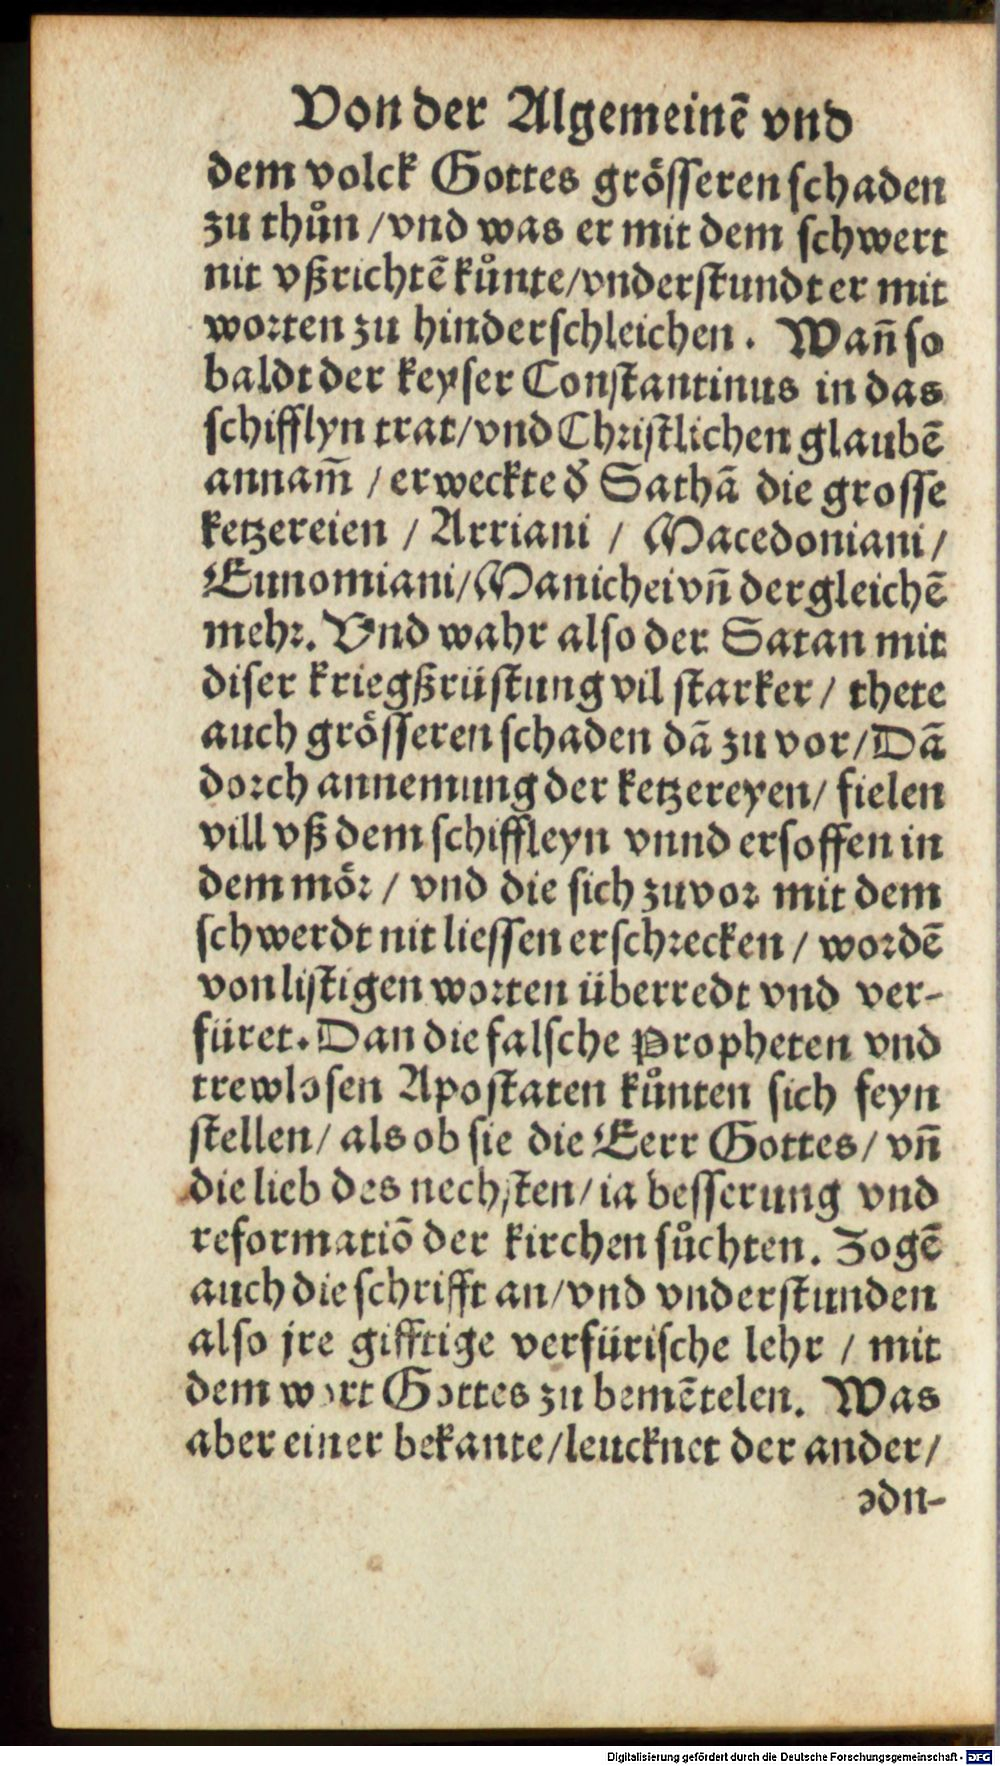 Von der Algemeinē vnd
dem volck Gottes grösseren schaden
zu thůn / vnd was er mit dem schwert
nit vßrichtē kůnte / vnderstundt er mit
worten zu hinderschleichen. Wañ so
baldt der keyser Constantinus in das
schifflyn trat / vnd Christlichen glaubē
annam̄ / erweckte d̕ Sathā die grosse
ketzereien / Arriani / Macedoniani /
Eunomiani / Manichei vñ dergleichē
mehr. Vnd wahr also der Satan mit
diser kriegßrüstung vil starker / thete
auch grösseren schaden dā zu vor / Dā
dorch annemung der ketzereyen / fielen
vill vß dem schiffleyn vnnd ersoffen in
dem mör / vnd die sich zuvor mit dem
schwerdt nit liessen erschrecken / wordē
von listigen worten überredt vnd ver-
füret. Dan die falsche Propheten vnd
trewlosen Apostaten kůnten sich feyn
stellen / als ob sie die Eerr Gottes / vñ
die lieb des nechsten / ia besserung vnd
reformatiō der kirchen sůchten. Zogē
auch die schrifft an / vnd vnderstunden
also jre gifftige verfürische lehr / mit
dem wort Gottes zu bemētelen. Was
aber einer bekante / leucknet der ander /
odn-
Digitalisierung gefördert durch die Deutsche Forschungsgemeinschaft - DFG